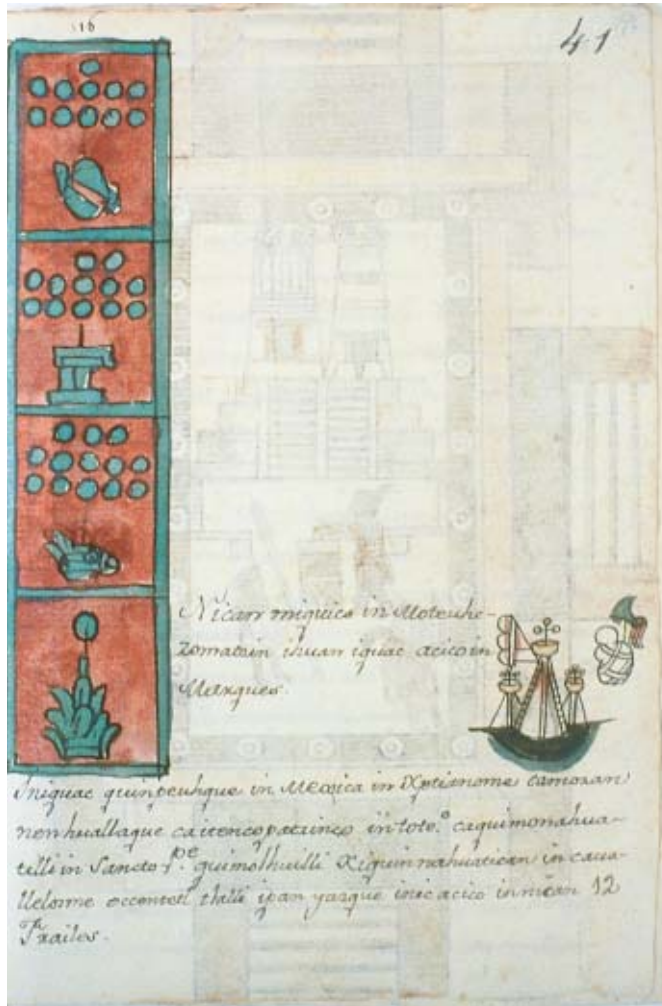 516
41
Nican miquico in Moteuhc-
zomatzin ihuan iquac acico in
Marques
Iniquac quinpeuhque in Mexica in Xptianome camoxan
non huallaque ca itencopatzinco in toto.º caquimonahua-
tilli in Sancto p.e quimolhuilli Xiquinnahuatican in caua-
llelome occentetl tlalli ipan yazque inic acico in nican 12
Frailes.